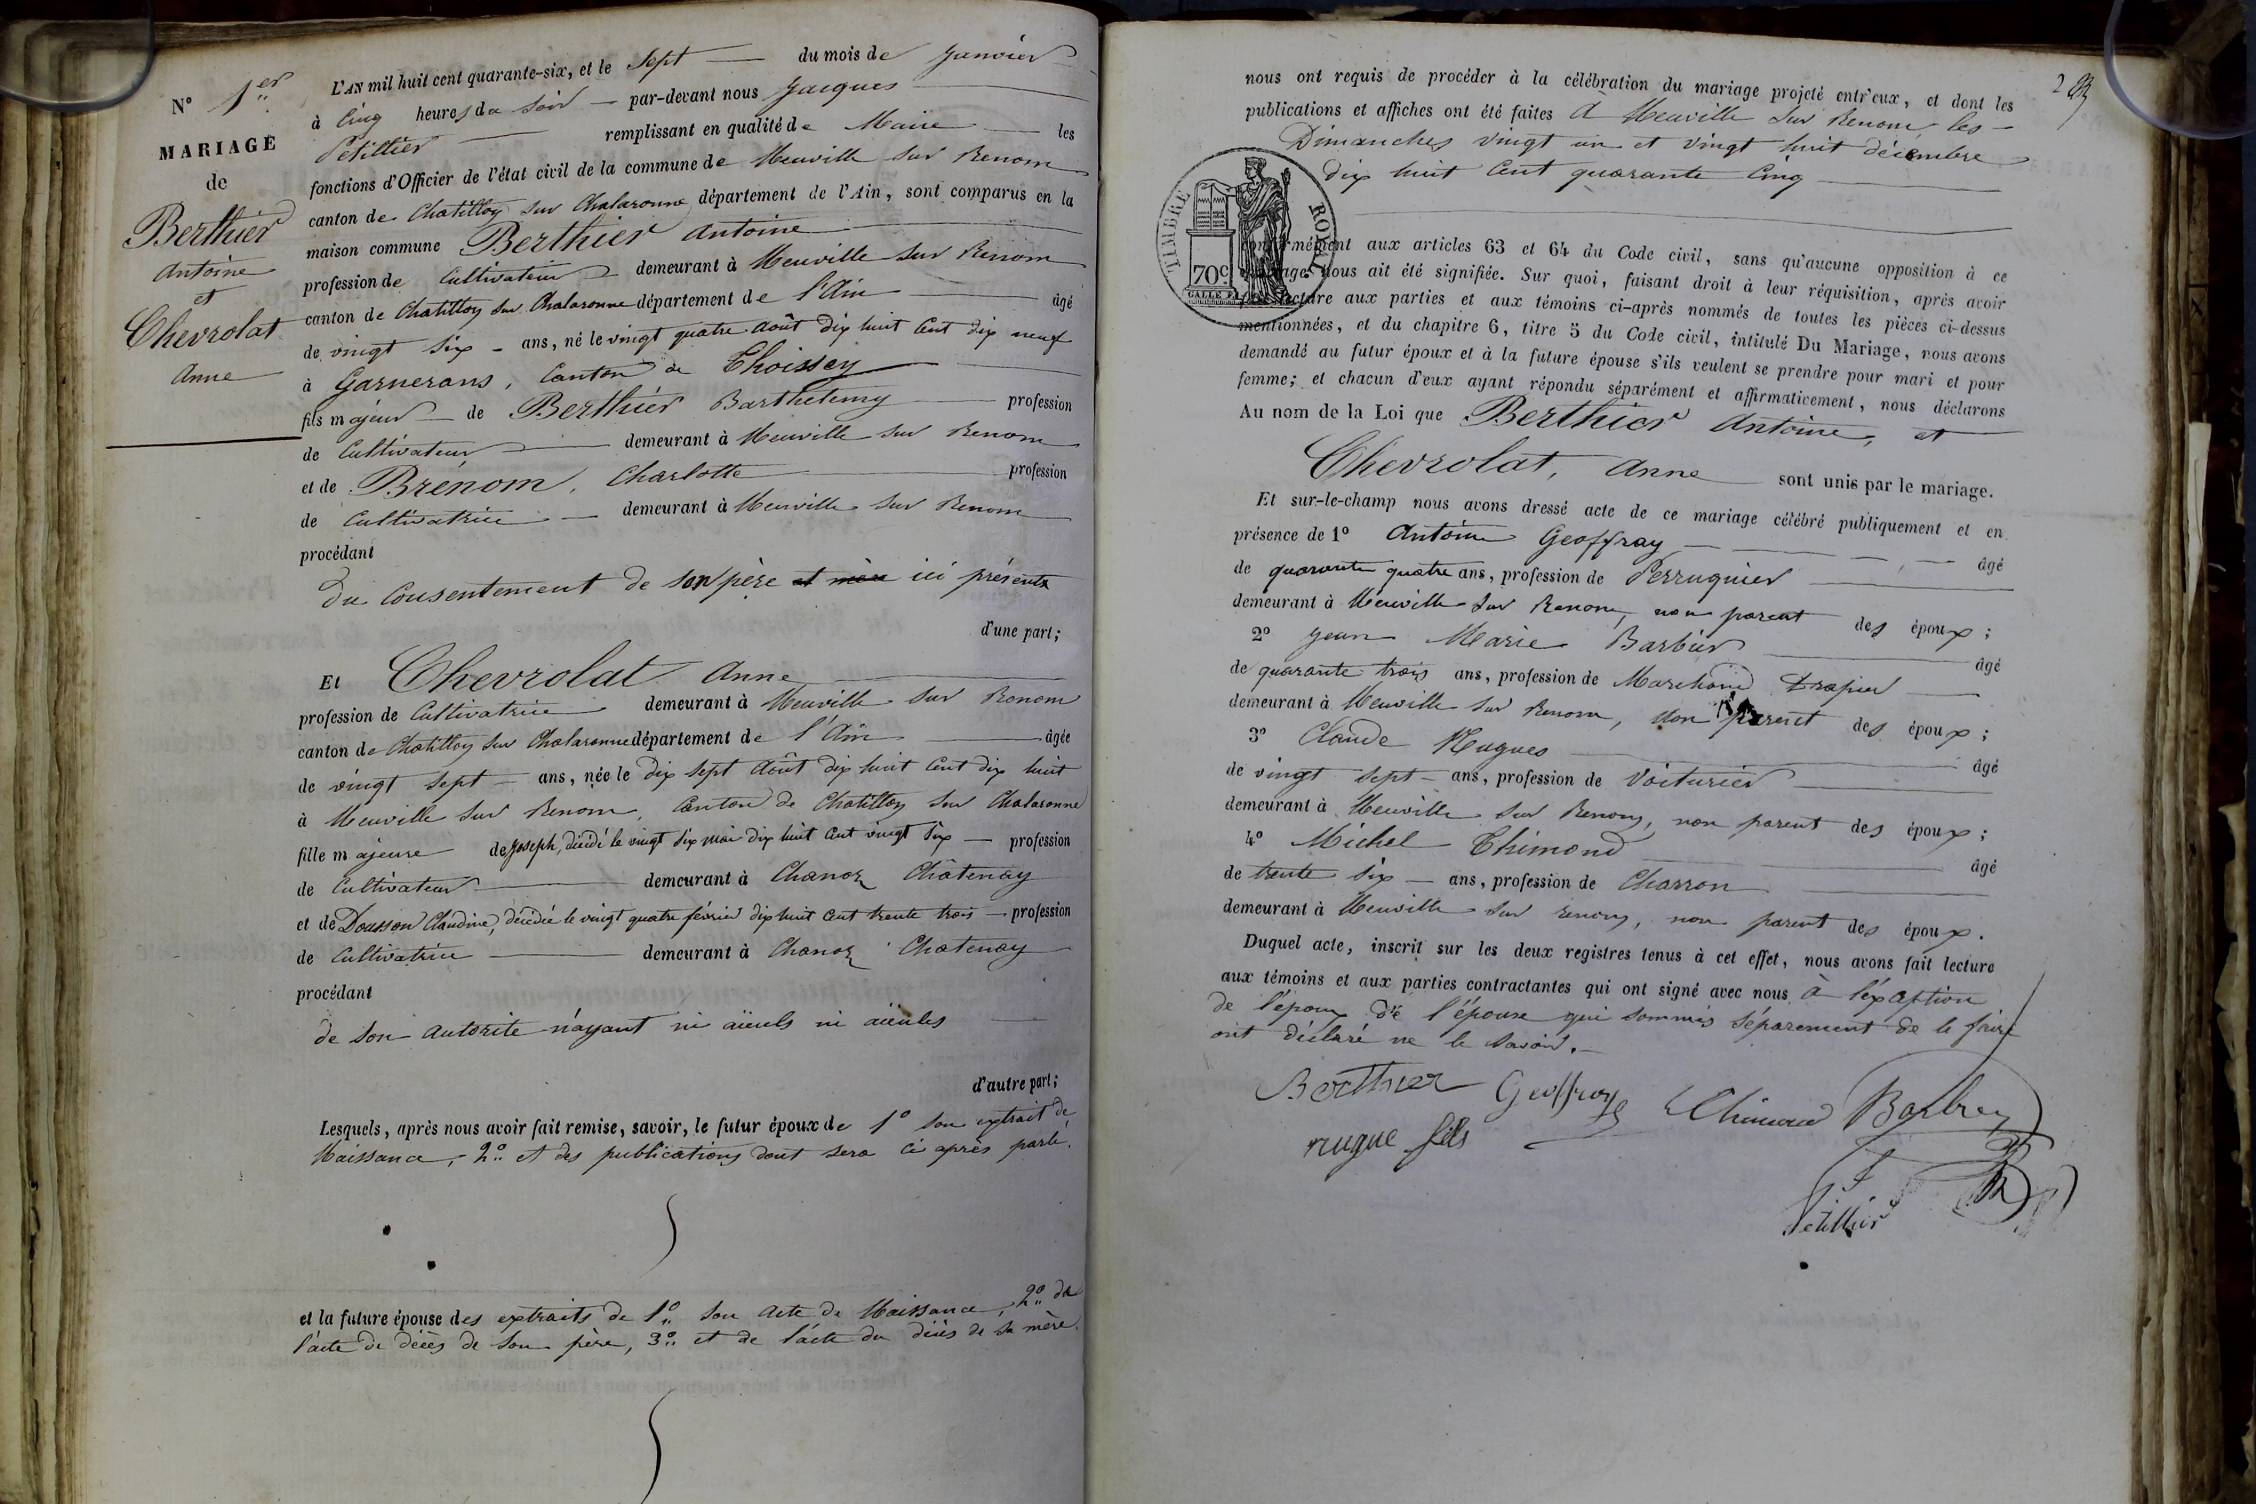 N° 1er
MARIAGE
de
Berthier
Antoine
et
Chevrolat
Anne
L'AN mil huit cent quarante-six, et le Sept du mois de Janvier
à Cinq heures du Soir par-devant nous Jacques
Petillier remplissant en qualité de Maire les
fonctions d'Officier de l'état civil de la commune de Neuville sur Renom
canton de Chatillon sur Chalaronne département de l'Ain, sont comparus en la
maison commune Berthier Antoine
profession de Cultivateur demeurant à Neuville sur Renom
canton de Chatillon sur Chalaronne département de l'Ain âgé
de vingt six ans, né le vingt quatre Août dix huit Cent dix neuf
à Garnerans, Canton de Thoissey
fils majeur de Berthier Barthelemy profession
de Cultivateur demeurant à Neuville sur Renom
et de Brénom, Charlotte profession
de Cultivatrice demeurant à Neuville sur Renom
procédant
du Consentement de son père et mère ici présents
d'une part;
Et Chevrolat Anne
profession de Cultivatrice demeurant à Neuville sur Renom
canton de Chatillon sur Chalaronne département de l'Ain âgée
de vingt sept ans, née le dix sept Août dix huit Cent dix huit
à Neuville sur Renom, Canton de Chatillon sur Chalaronne
fille majeure de Joseph, décédé le vingt six mai dix huit Cent vingt six profession
de Cultivateur demeurant à Chanoz Châtenay
et de Dousson Claudine, décédée le vingt quatre février dix huit Cent trente trois profession
de Cultivatrice demeurant à Chanoz Chatenay
procédant
de son autorité n'ayant ni aïeuls ni aïeules
d'autre part;
Lesquels, après nous avoir fait remise, savoir, le futur époux de 1° son extrait de
Naissance, 2° et des publications dont sera Ci après parlé.
et la future épouse des extraits de 1° son acte de Naissance, 2° de
l'acte de décès de son père, 3° et de l'acte du décès de sa mère.
2
nous ont requis de procéder à la célébration du mariage projeté entr'eux, et dont les
publications et affiches ont été faites à Neuville sur Renom les
Dimanches vingt un et vingt huit décembre
dix huit Cent quarante Cinq
TIMBRE ROYAL
70c.
conformément aux articles 63 et 64 du Code civil, sans qu'aucune opposition à ce
mariage nous ait été signifiée. Sur quoi, faisant droit à leur réquisition, après avoir
lecture aux parties et aux témoins ci-après nommés de toutes les pièces ci-dessus
mentionnées, et du chapitre 6, titre 5 du Code civil, intitulé Du Mariage, nous avons
demandé au futur époux et à la future épouse s'ils veulent se prendre pour mari et pour
femme; et chacun d'eux ayant répondu séparément et affirmativement, nous déclarons
Au nom de la Loi que Berthier Antoine, et
Chevrolat, Anne sont unis par le mariage.
Et sur-le-champ nous avons dressé acte de ce mariage célébré publiquement et en
présence de 1° Antoine Geoffray âgé
de quarante quatre ans, profession de Perruquier
demeurant à Neuville sur Renom, non parent des époux;
2° Jean Marie Barbier âgé
de quarante trois ans, profession de Marchand Drapier
demeurant à Neuville sur Renom, non parent des époux;
3° Claude Nugues âgé
de vingt sept ans, profession de Voiturier
demeurant à Neuville sur Renom, non parent des époux;
4° Michel Thimond âgé
de trente six ans, profession de Charron
demeurant à Neuville sur renom, non parent des époux.
Duquel acte, inscrit sur les deux registres tenus à cet effet, nous avons fait lecture
aux témoins et aux parties contractantes qui ont signé avec nous à l'exception
de l'époux de l'épouse qui sommés séparément de le faire
ont déclaré ne le savoir.
Berthier Geoffray Thimond Barbier
nugue fils
Petillier